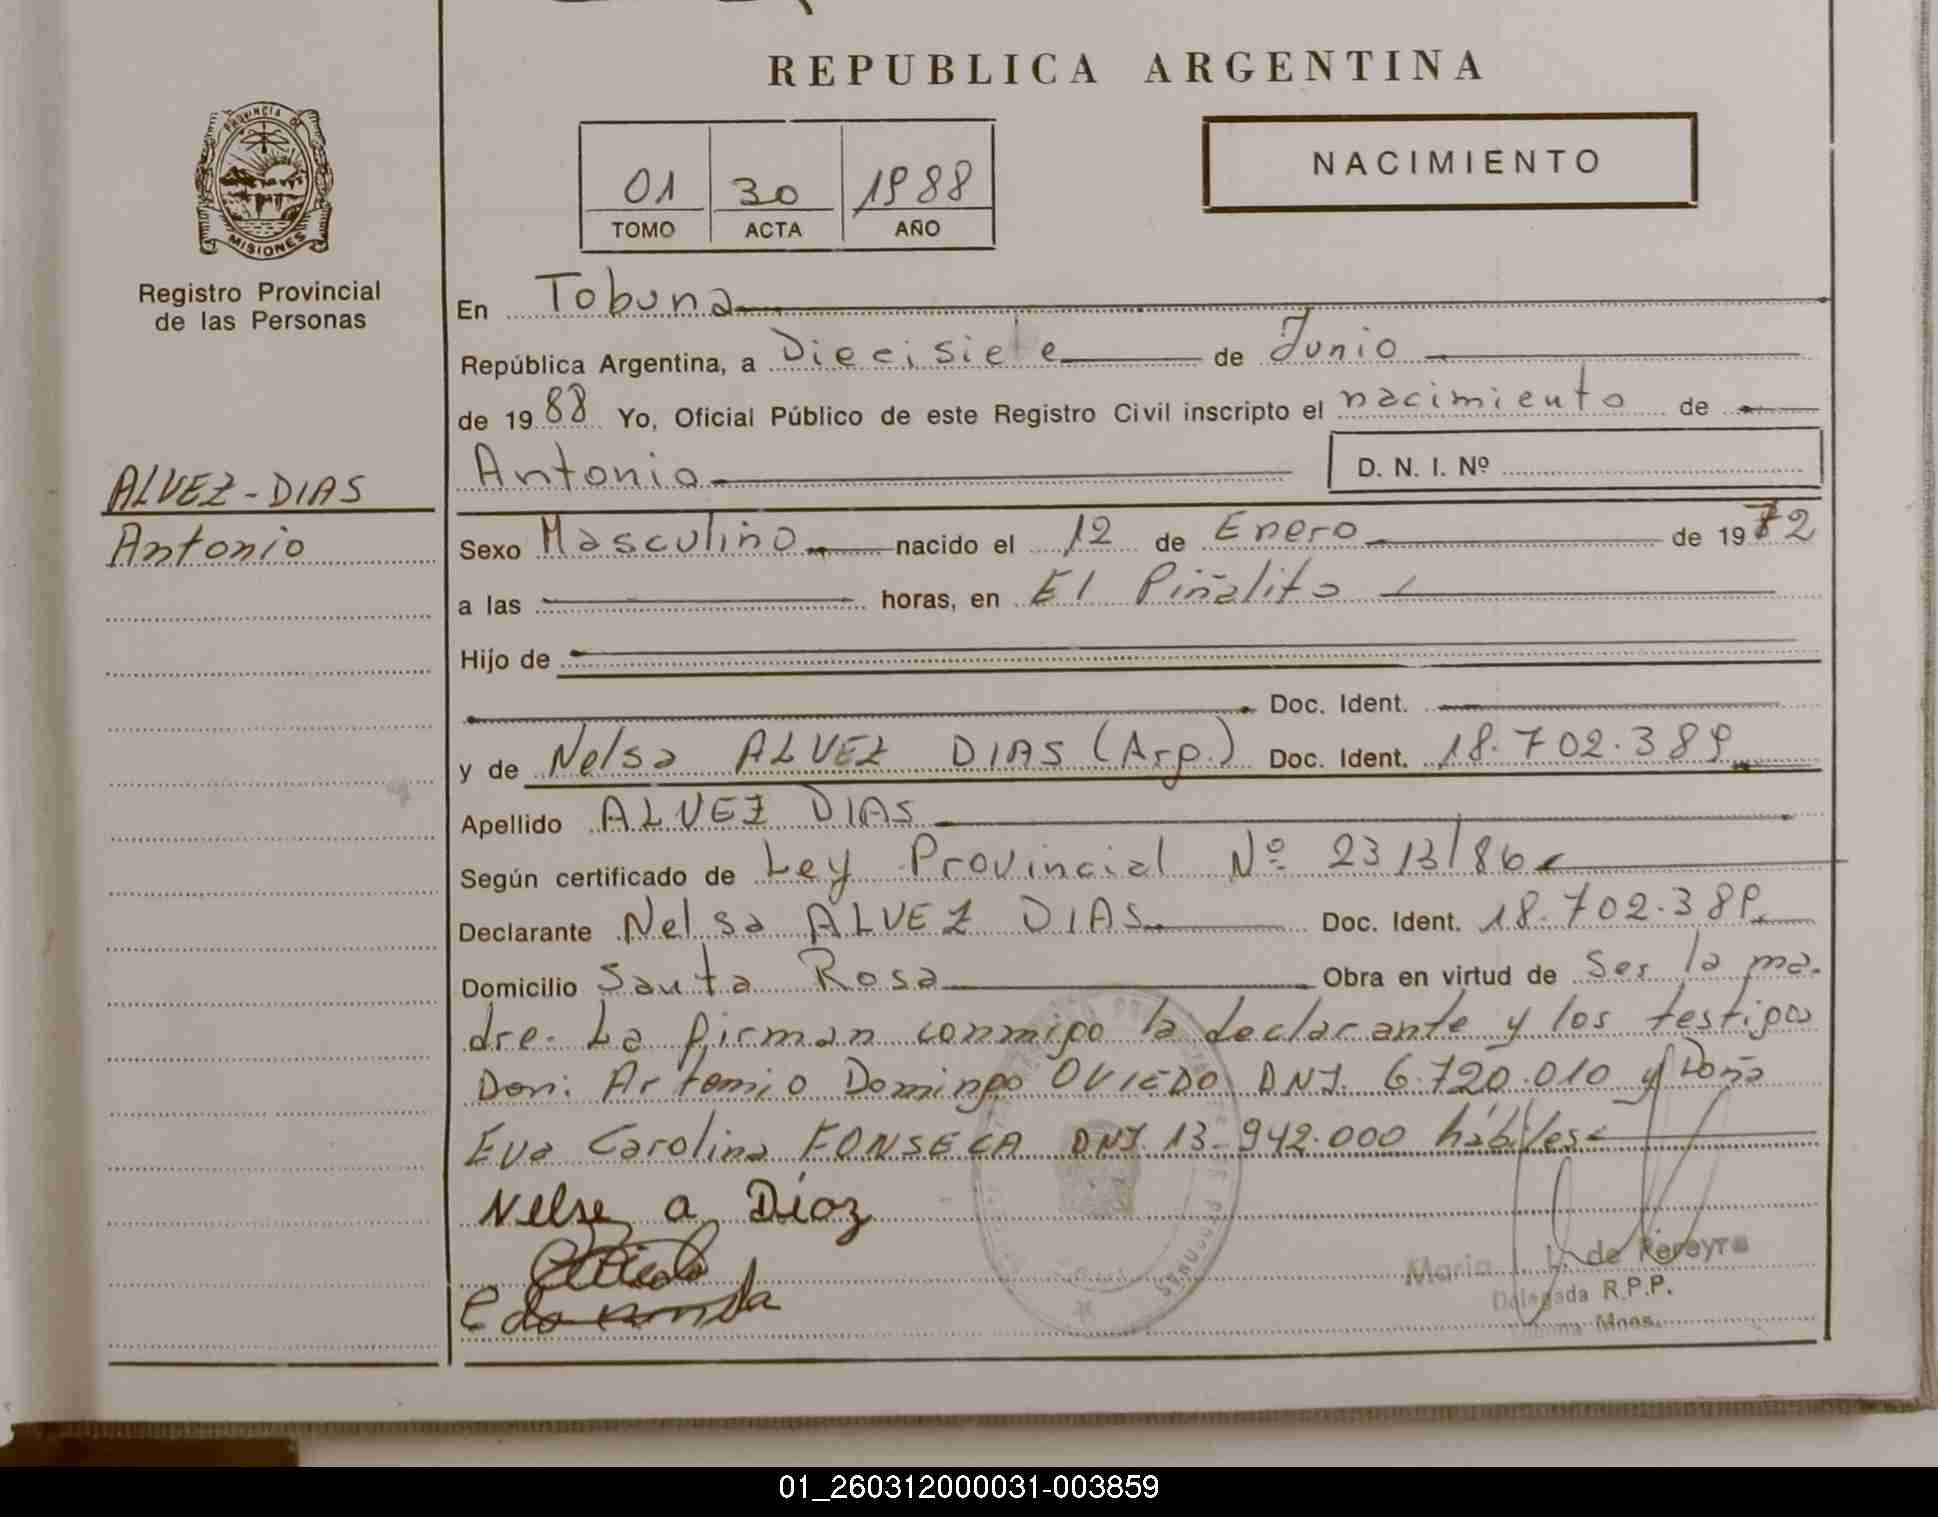 REPUBLICA ARGENTINA
PROVINCIA DE
MISIONES
Registro Provincial
de las Personas
NACIMIENTO
01 30 1988
TOMO ACTA AÑO
En Tobuna
República Argentina, a Diecisiete de Junio
de 1988 Yo, Oficial Público de este Registro Civil inscripto el nacimiento de
Antonio D. N. I. Nº
ALVEZ-DIAS
Antonio
Sexo Masculino nacido el 12 de Enero de 1972
a las horas, en El Piñalito
Hijo de
Doc. Ident.
y de Nelsa ALVEZ DIAS (Arg.) Doc. Ident. 18.702.389
Apellido ALVEZ DIAS
Según certificado de Ley Provincial Nº 2313/86
Declarante Nelsa ALVEZ DIAS Doc. Ident. 18.702.389
Domicilio Santa Rosa Obra en virtud de ser la ma-
dre. La firman conmigo la declarante y los testigos
Don: Artemio Domingo OVIEDO DNI. 6.720.010 y Doña
Eva Carolina FONSECA DNI. 13.942.000 hábiles
Nelse a Díaz
Maria L. de Pereyra
Delegada R.P.P.
Mnes.
01_260312000031-003859